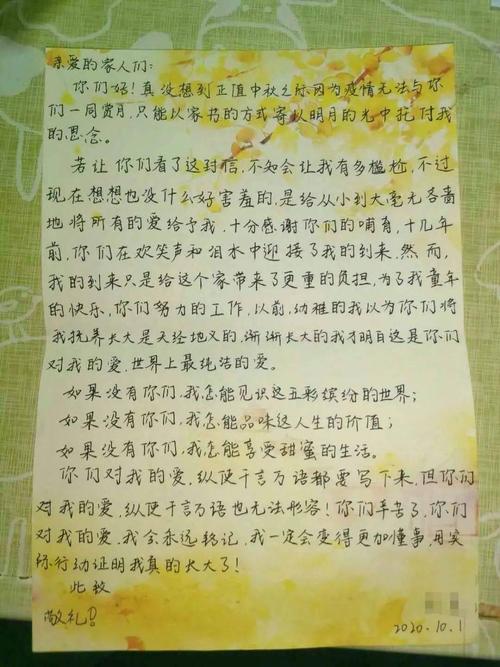 亲爱的家人们:
你们好!真没想到正值中秋之际因为疫情无法与你
们一同赏月,只能以家书的方式寄以明月的光中托付我
的思念。
若让你们看了这封信,不知会让我有多尴尬,不过
现在想想也没什么好害羞的,是给从小到大毫无吝啬
地将所有的爱给予我,十分感谢你们的哺育,十几年
前,你们在欢笑声和泪水中迎接了我的到来,然而,
我的到来只是给这个家带来了更重的负担,为了我童年
的快乐,你们努力的工作,以前,幼稚的我以为你们将
我抚养长大是天经地义的,渐渐长大的我才明白这是你们
对我的爱,世界上最纯洁的爱。
如果没有你们,我怎能见识这五彩缤纷的世界;
如果没有你们,我怎能品味这人生的价值;
如果没有你们,我怎能享受甜蜜的生活。
你们对我的爱,纵使千言万语都要写下来,但你们
对我的爱,纵使千言万语也无法形容!你们辛苦了,你们
对我的爱,我会永远铭记,我一定会变得更加懂事,用实
际行动证明我真的长大了!
此致
敬礼!
2020.10.1